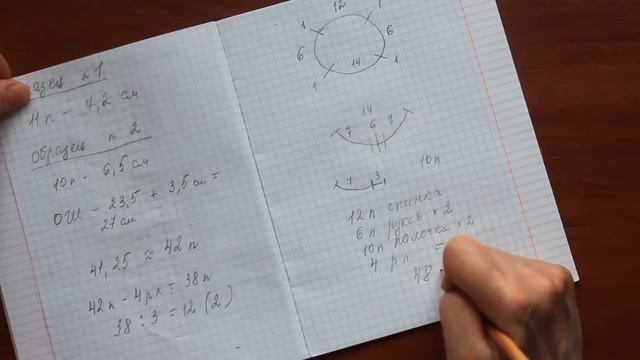 Образец n 1
11п - 7,2 см
Образец n 2
10п - 6,5 см
ОШ - 23,5 + 3,5 см =
27 см
41,25 ≈ 42 п
42п - 4 рл = 38 п
38 : 3 = 12 (2)
12
1 1
6 6
14
1 1
14
7 6 7
7 3
10п
12 п спинка
6п рукав × 2
10п полочка × 2
4 рл =
48